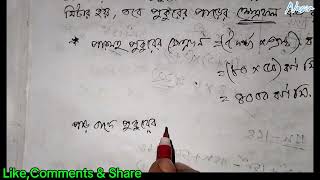 মিটার হয়, তবে পুকুরের পাড়ের ক্ষেত্রফল
Ahsan
* পাড়সহ পুকুরের ক্ষেত্রফল = (দৈর্ঘ্য × প্রস্থ)
= (৮০ × ৫০) বর্গ মি.
= ৪০০০ বর্গ মি.
পাড় বাদে পুকুরের
Like,Comments & Share